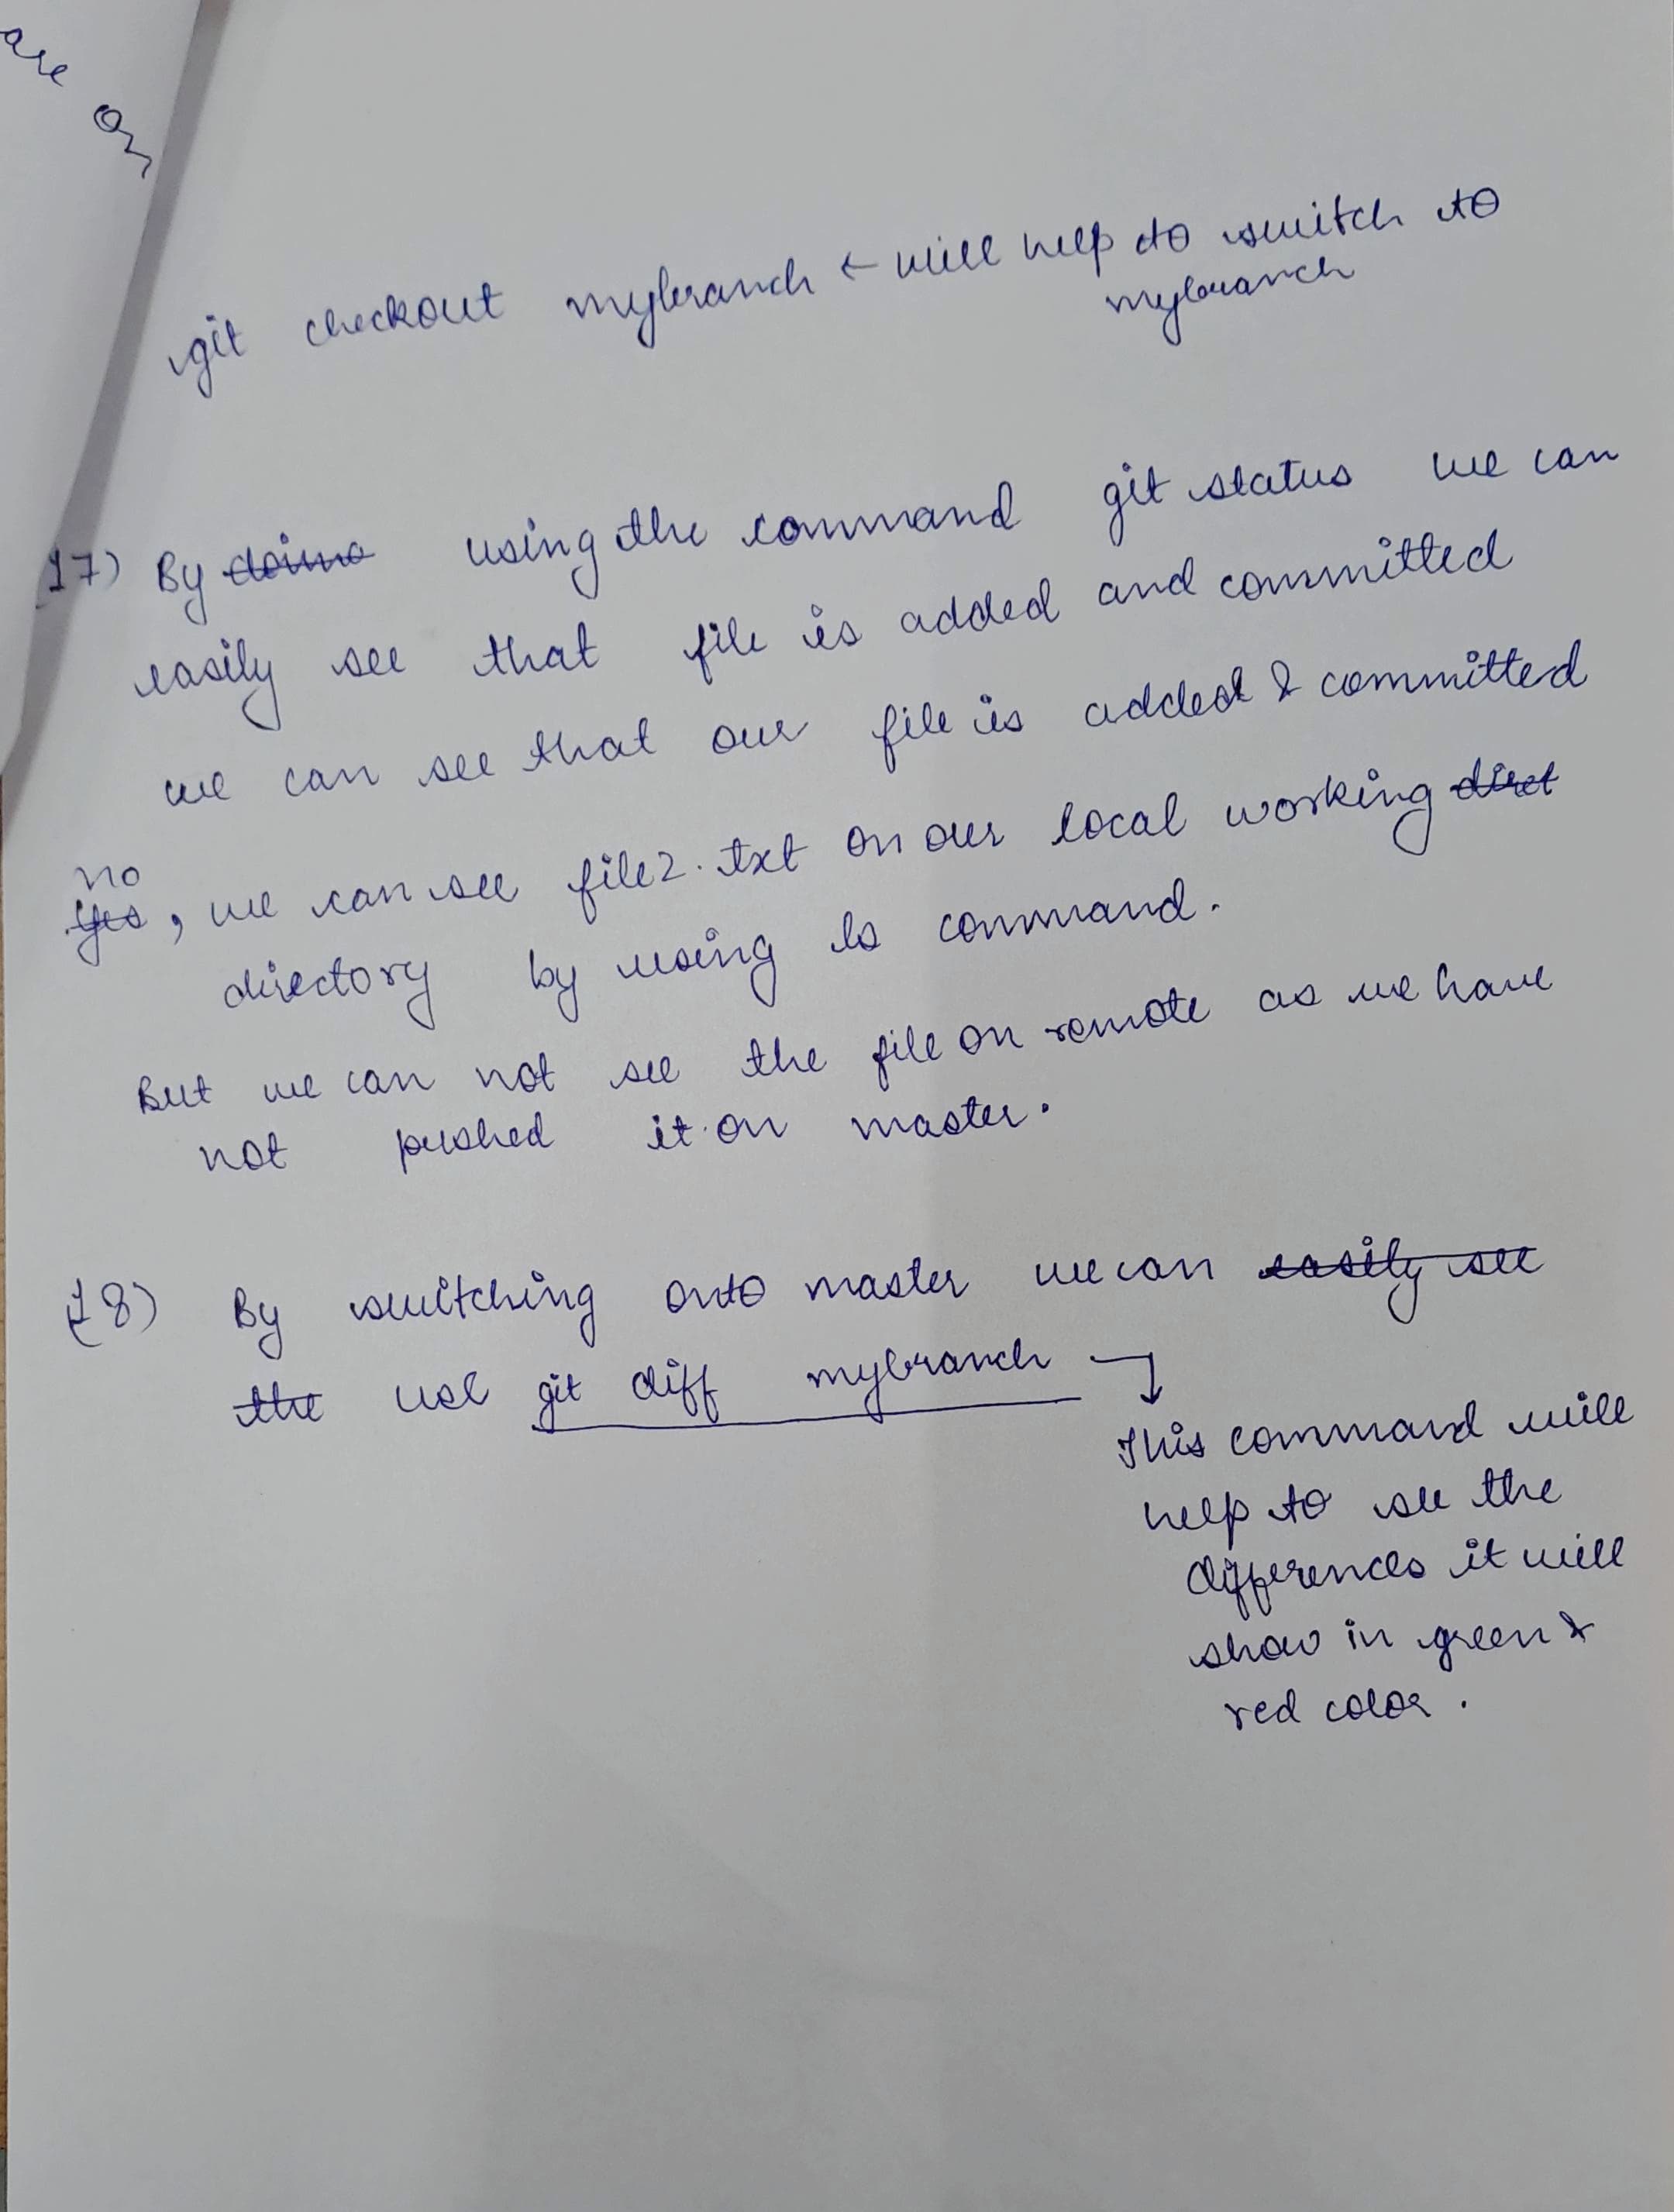 are on
git checkout mybranch ← will help to switch to
mybranch
17) By doing using the command git status we can
easily see that file is added and committed
we can see that our file is added & committed
no
yes, we can see file2.txt on our local working direct
directory by using ls command.
But we can not see the file on remote as we have
not pushed it on master.
18) By switching onto master we can easily see
the use git diff mybranch
This command will
help to see the
differences it will
show in green &
red color.